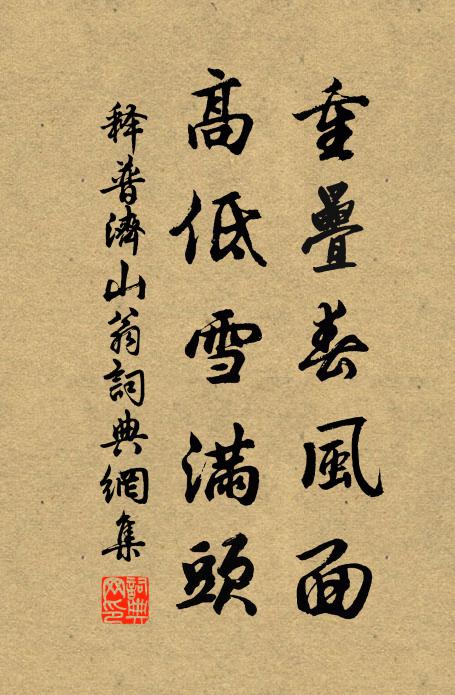 重疊春風面
高低雪滿頭
釋普濟山翁詞典網集
詞典網印